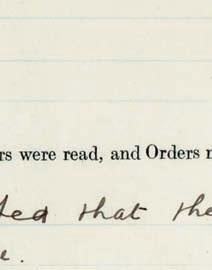 rs were read, and Orders
ted that the
e.